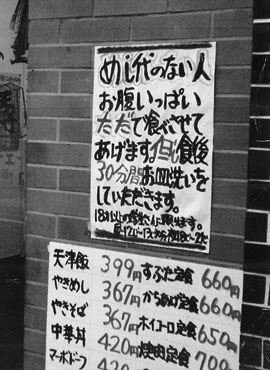 めし代のない人
お腹いっぱい
ただで食べさせて
あげます。但し食後
30分間お皿洗いを
していただきます。
18才以上の学生さんに限ります。
天津飯 399円 すぶた定食 660円
やきめし 367円 からあげ定食 660円
やきそば 367円 ホイコーロ定食 650円
中華丼 420円 焼肉定食 700
マーボドーフ 420